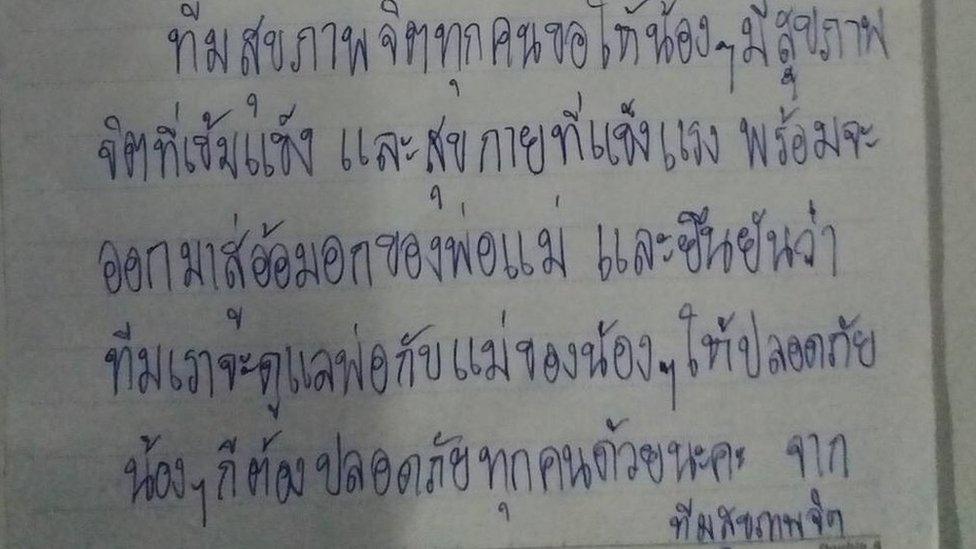 ทีมสุขภาพจิตทุกคนขอให้น้องๆมีสุขภาพ
จิตที่เข้มแข็ง และสุขกายที่แข็งแรง พร้อมจะ
ออกมาสู่อ้อมอกของพ่อแม่ และยืนยันว่า
ทีมเราจะดูแลพ่อกับแม่ของน้องๆให้ปลอดภัย
น้องๆก็ต้องปลอดภัยทุกคนด้วยนะคะ จาก
ทีมสุขภาพจิต